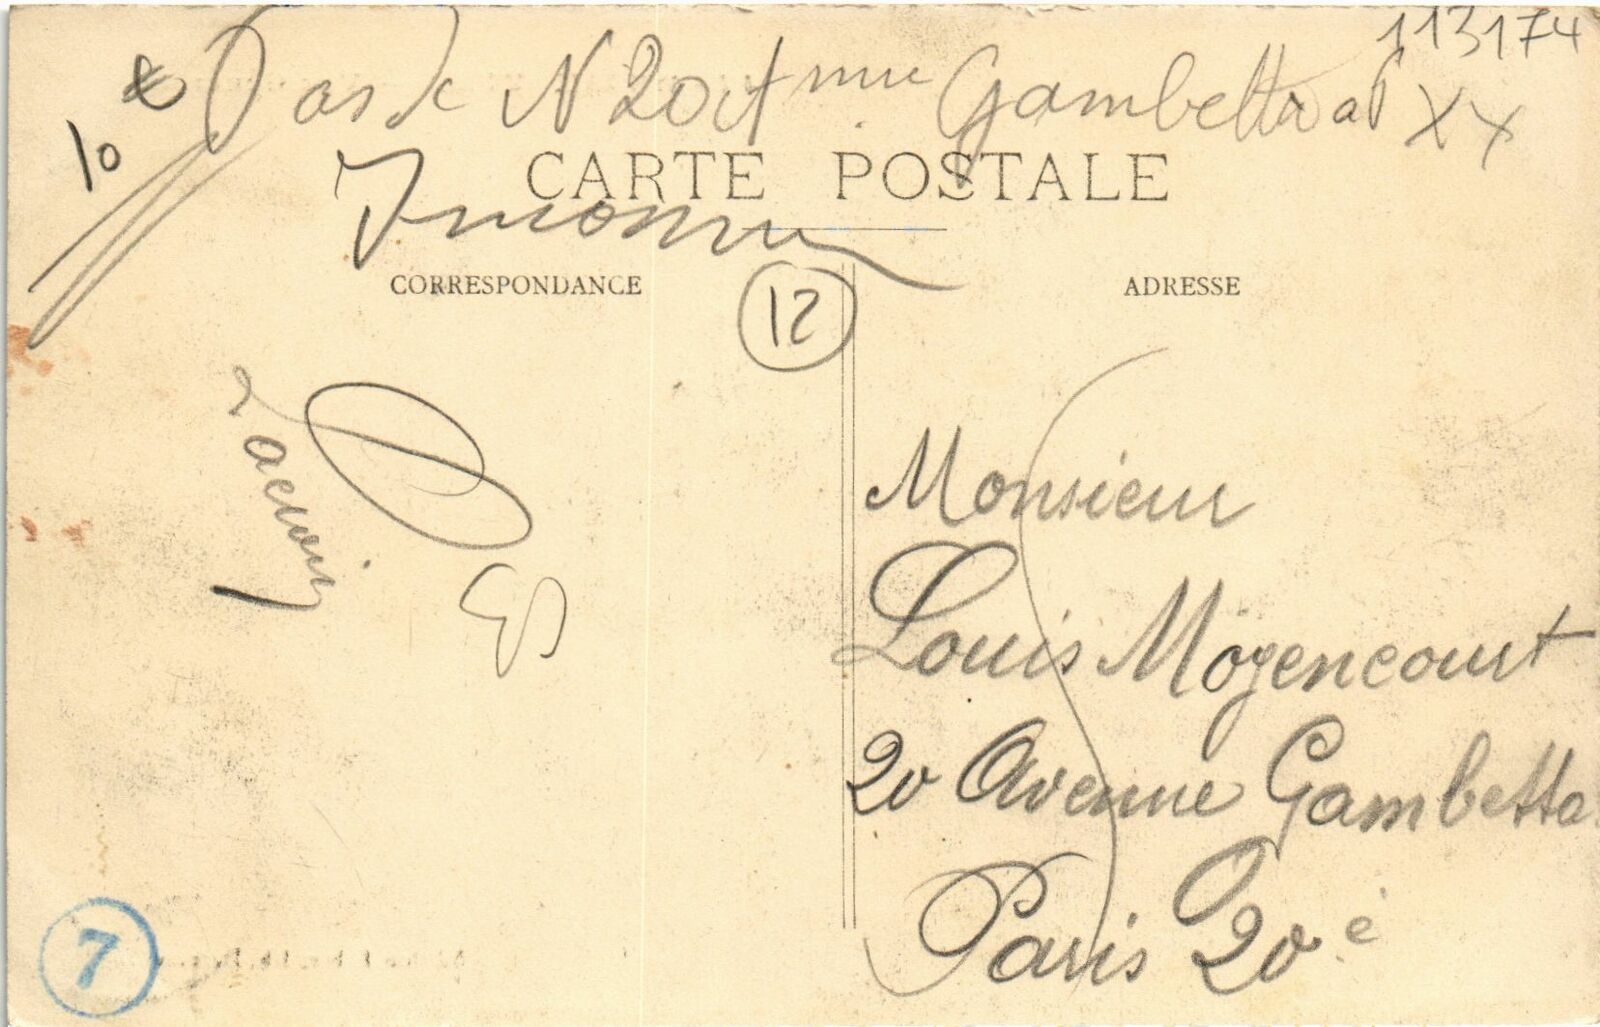 113174
10 €
Pas de N 20 Av nue Gambetta a P XX
Inconnu
CARTE POSTALE
CORRESPONDANCE
ADRESSE
12
Monsieur
Louis Mogencourt
20 Avenue Gambetta
Paris 20 e
7